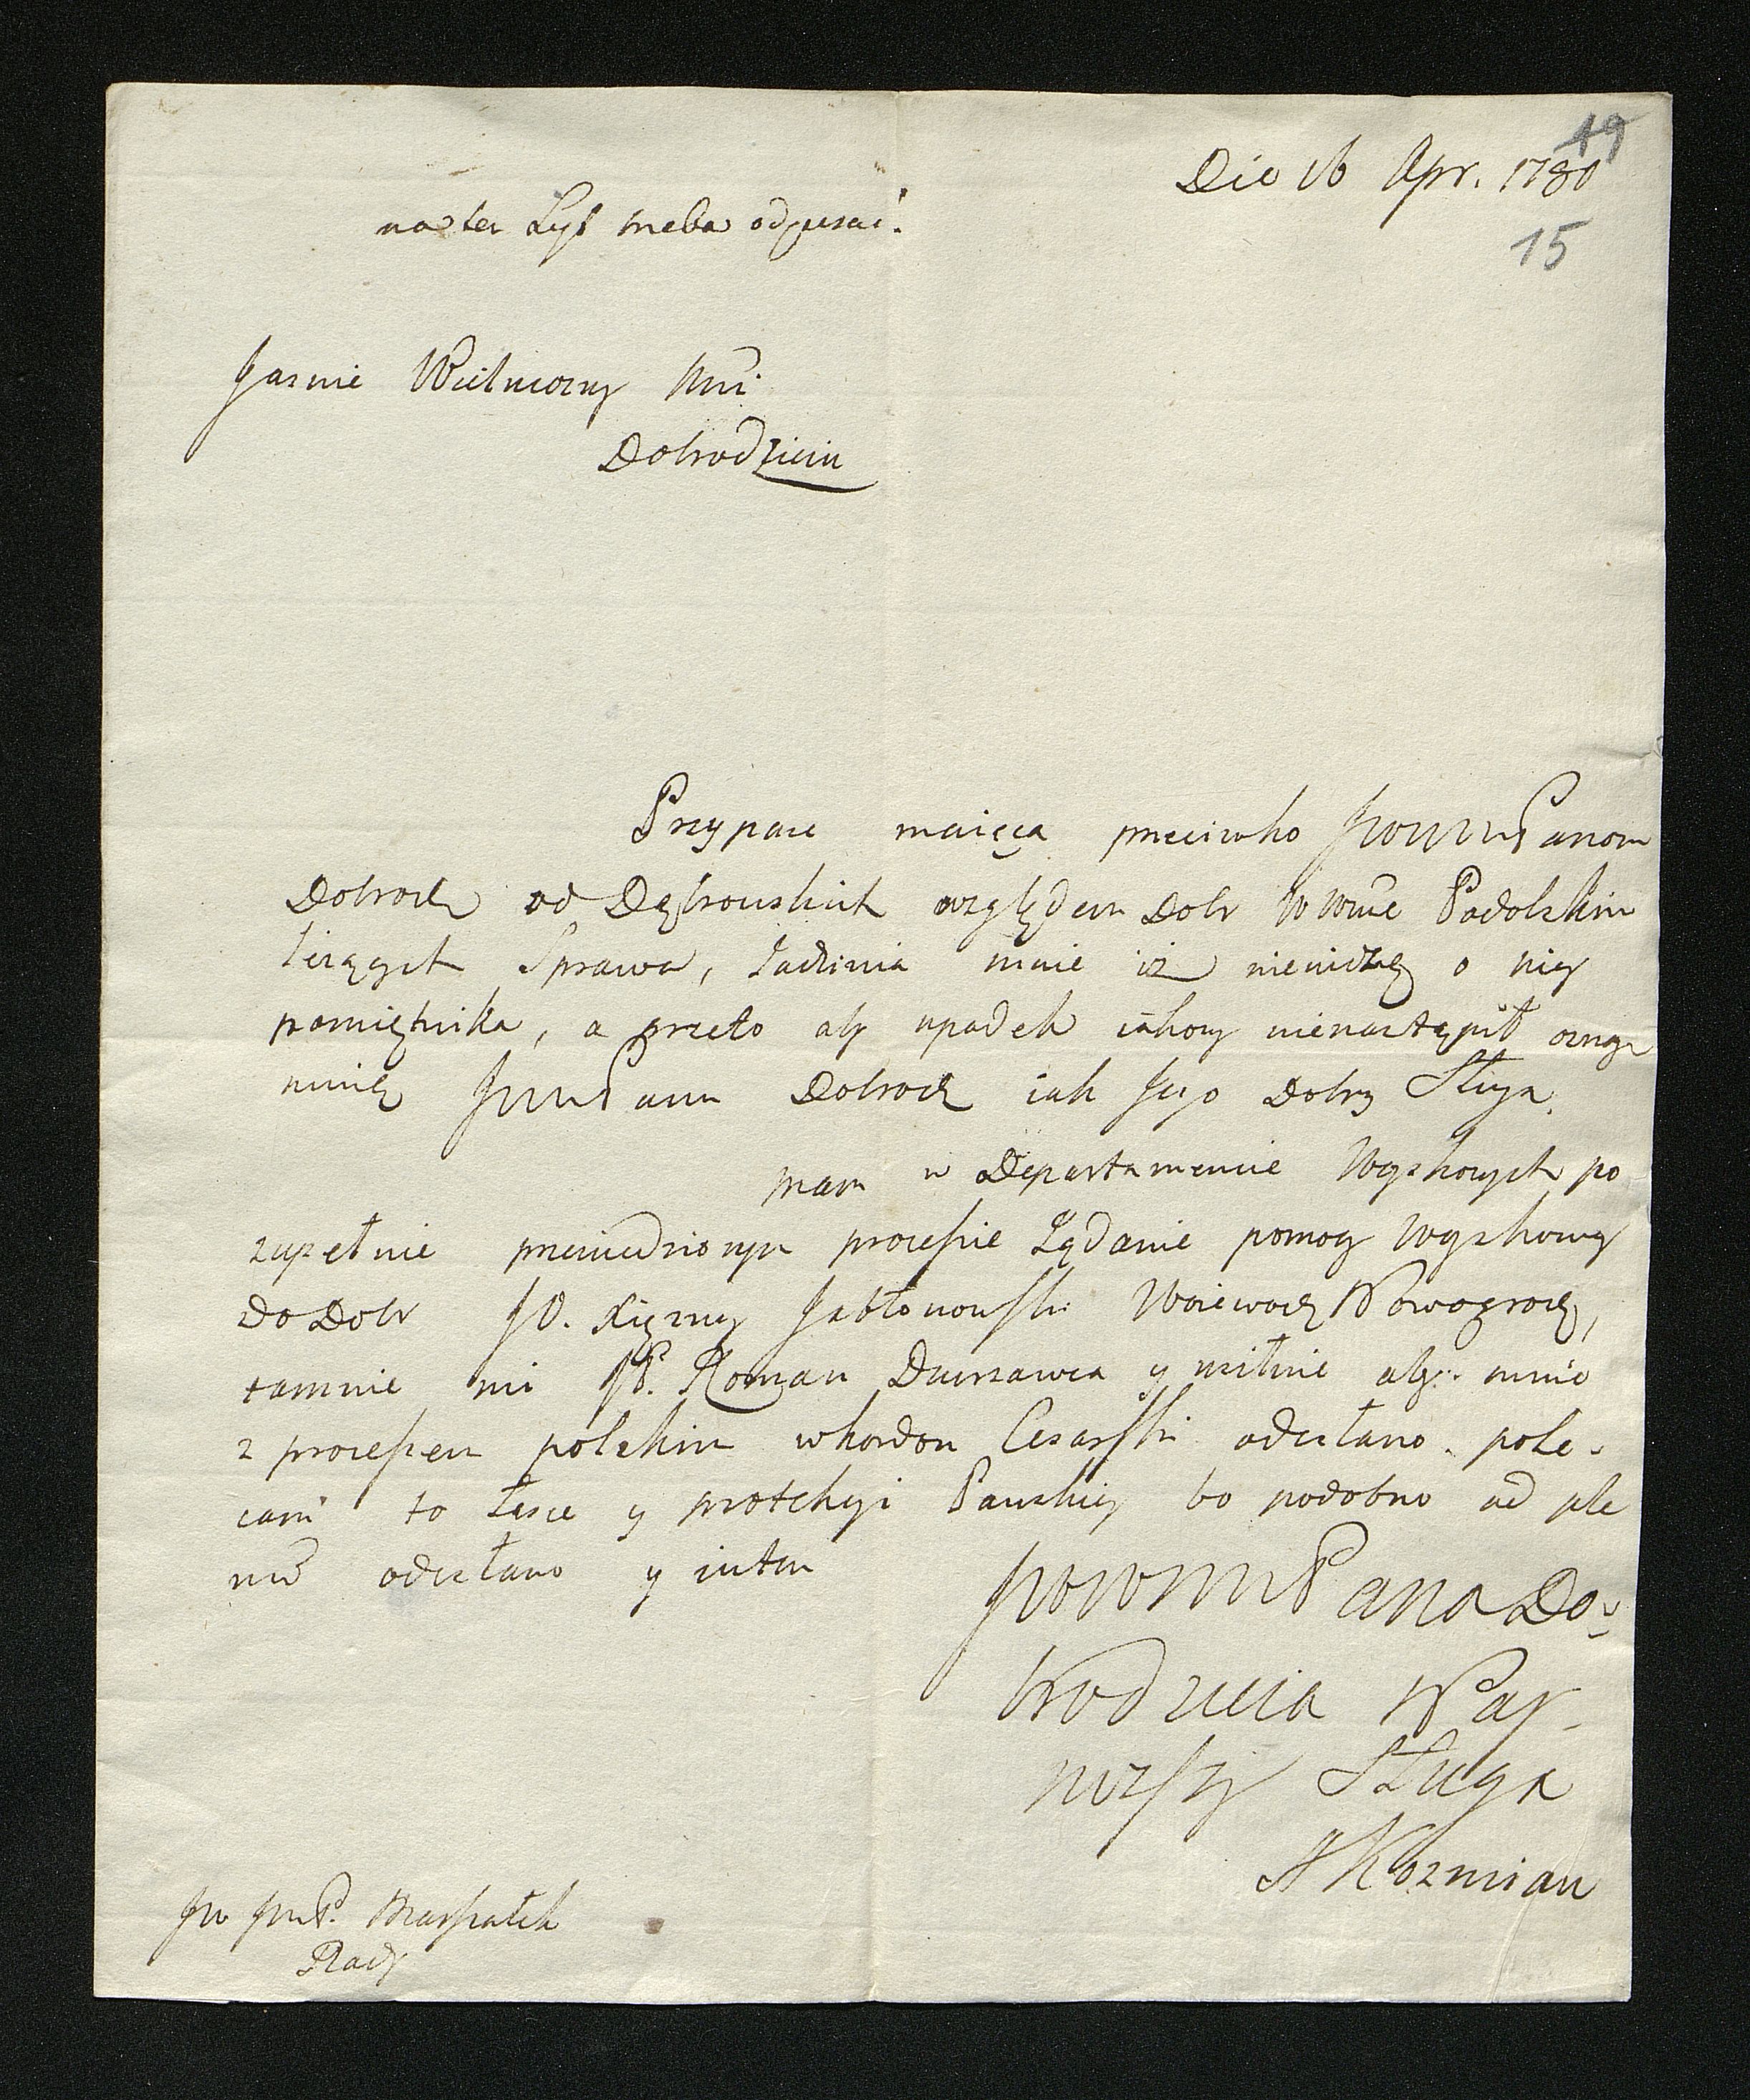 49
Die 16 Apr. 1780
na ten Lyst trzeba odpisać.
15
Jasnie Wielmozny Mci
Dobrodzieiu
Przypaść maiąca przeciwko JWWM Panom
Dobrodz od Dąbrowskich względem Dobr w Wwie Podolskim
leżących Sprawa, zadziwia mnie iż niewidzę o niey
pamiętnika, a przeto aby upadek iakowy nienastąpił oznay
muię JWM Panu Dobrodz iak Jego Dobry Sługa.
mam w Departamencie Woyskowych po
zupełnie przewiedzionym processie Żądanie pomocy Woyskowy
do Dobr JO. Xiężny Jabłonowski Woiewodz Nowogrodz,
tamuie mi JP. Roman y usilnie aby mnie
z processem polskim w kordon Cesarski odesłano. pole-
cam to łasce y protekcyi Panskiey bo podobno ad ple
num odesłano y iutro
JWWM Pana Do-
brodzieia Nay-
niższy Sługa
A Kozmian
JW JmP. Marszałek
Rady